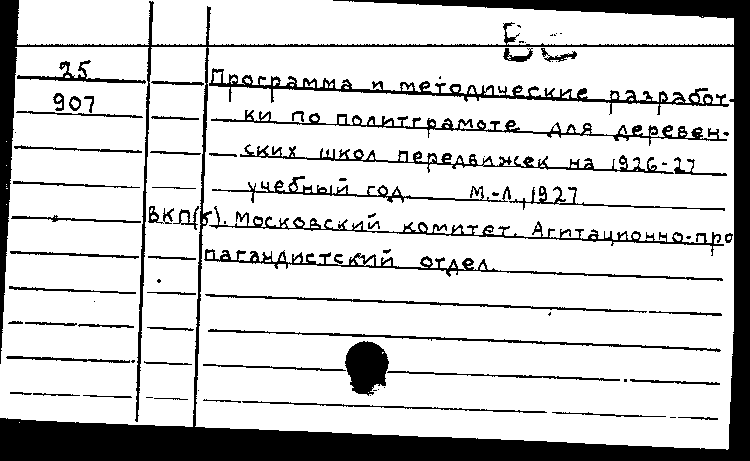 ВС
25
907
Программа и методические разработ-
ки по политграмоте для деревен-
ских школ передвижек на 1926-27
учебный год. М.-Л., 1927.
ВКП(б). Московский комитет. Агитационно-про
пагандистский отдел.